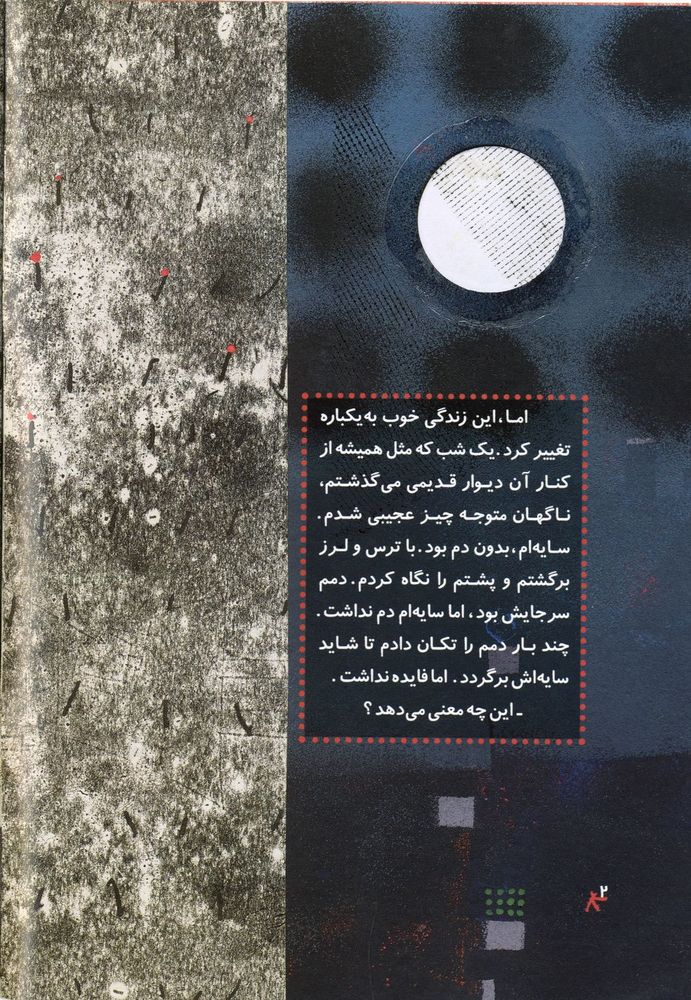 اما، این زندگی خوب به یکباره
تغییر کرد. یک شب که مثل همیشه از
کنار آن دیوار قدیمی می‌گذشتم،
ناگهان متوجه چیز عجیبی شدم.
سایه‌ام، بدون دم بود. با ترس و لرز
برگشتم و پشتم را نگاه کردم. دمم
سرجایش بود، اما سایه‌ام دم نداشت.
چند بار دمم را تکان دادم تا شاید
سایه‌اش برگردد. اما فایده نداشت.
ـ این چه معنی می‌دهد؟
۲